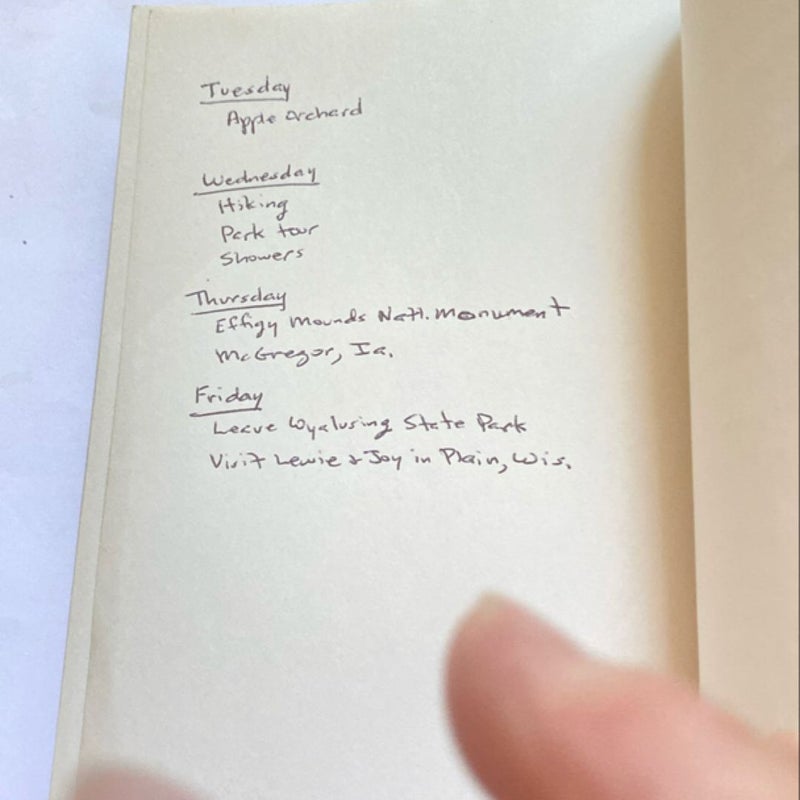 Tuesday
Apple Orchard
Wednesday
Hiking
Park tour
Showers
Thursday
Effigy Mounds Natl. Monument
McGregor, Ia.
Friday
Leave Wyalusing State Park
Visit Lewie & Joy in Plain, Wis.